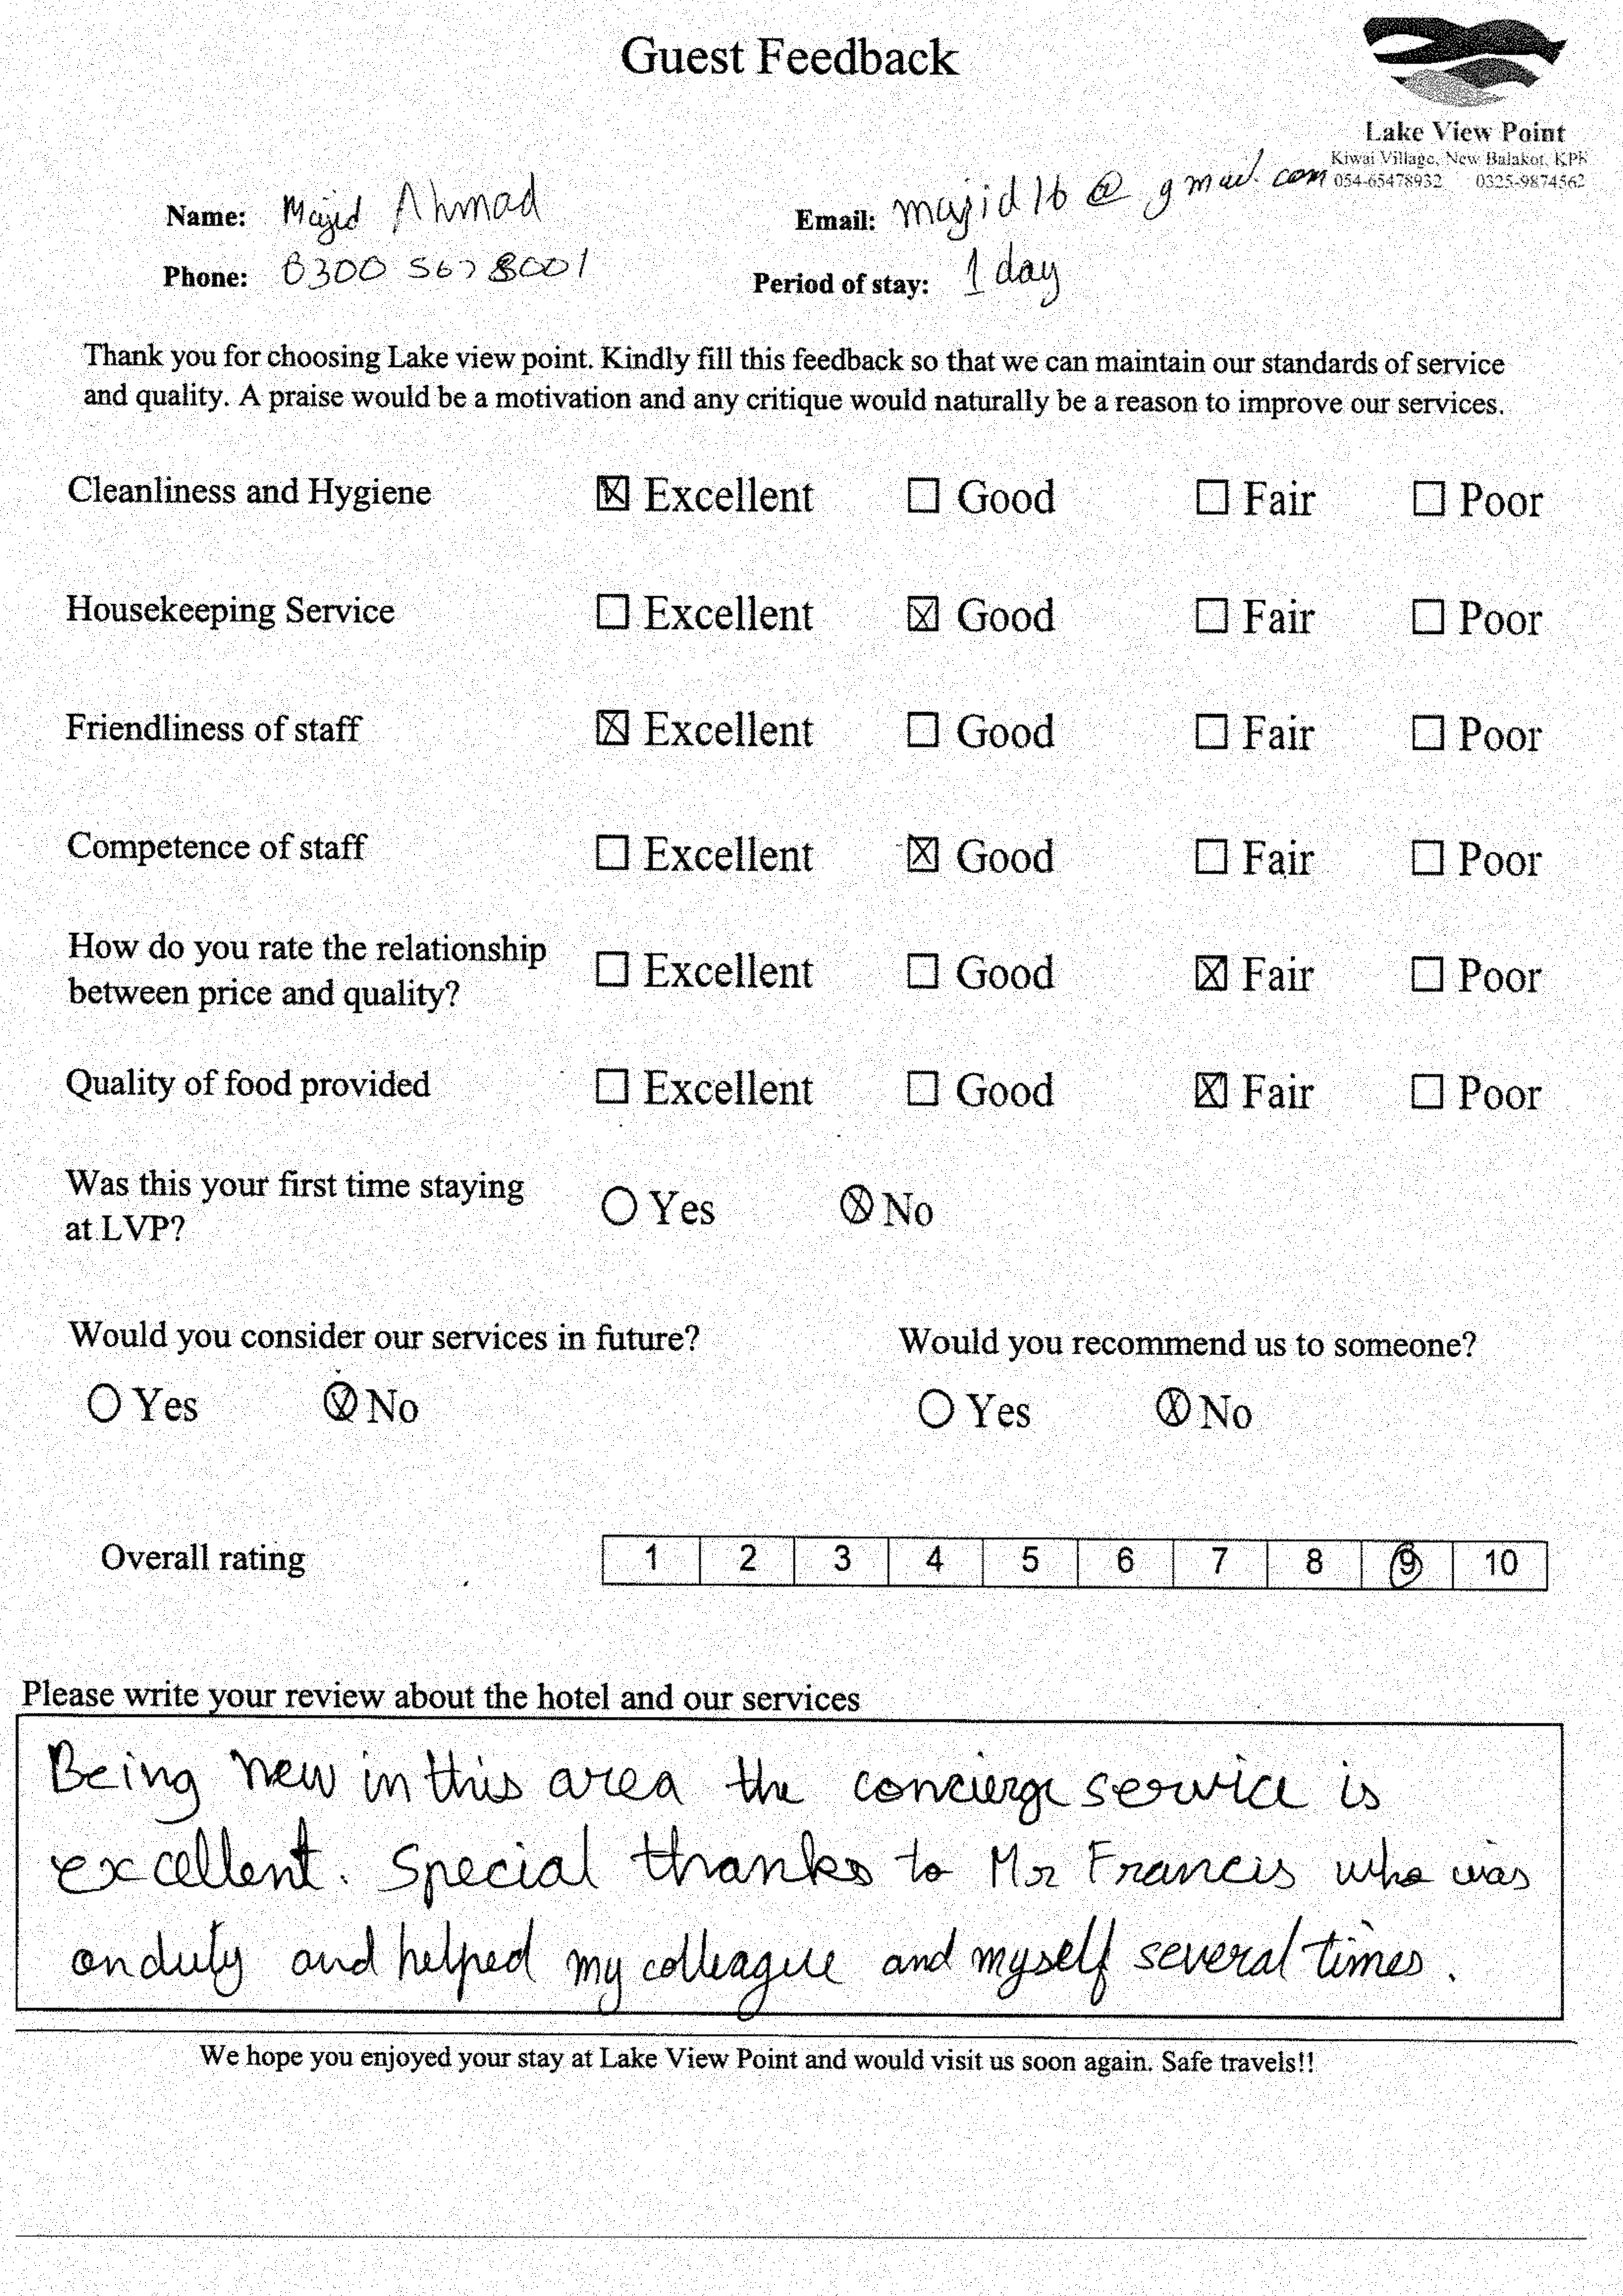 Guest Feedback
Lake View Point
Kiwai Village, New Balakot, KPK
054-65478932 0325-9874562
Name: Majid Ahmad
Email: majid16@gmail.com
Phone: 0300 5678001
Period of stay: 1 day
Thank you for choosing Lake view point. Kindly fill this feedback so that we can maintain our standards of service
and quality. A praise would be a motivation and any critique would naturally be a reason to improve our services.
Cleanliness and Hygiene ☒ Excellent ☐ Good ☐ Fair ☐ Poor
Housekeeping Service ☐ Excellent ☒ Good ☐ Fair ☐ Poor
Friendliness of staff ☒ Excellent ☐ Good ☐ Fair ☐ Poor
Competence of staff ☐ Excellent ☒ Good ☐ Fair ☐ Poor
How do you rate the relationship
between price and quality? ☐ Excellent ☐ Good ☒ Fair ☐ Poor
Quality of food provided ☐ Excellent ☐ Good ☒ Fair ☐ Poor
Was this your first time staying
at LVP? ○ Yes ⊗ No
Would you consider our services in future?
○ Yes ⊗ No
Would you recommend us to someone?
○ Yes ⊗ No
Overall rating 1 2 3 4 5 6 7 8 9 10
Please write your review about the hotel and our services
Being new in this area the concierge service is
excellent. Special thanks to Mr Francis who was
on duty and helped my colleague and myself several times.
We hope you enjoyed your stay at Lake View Point and would visit us soon again. Safe travels!!